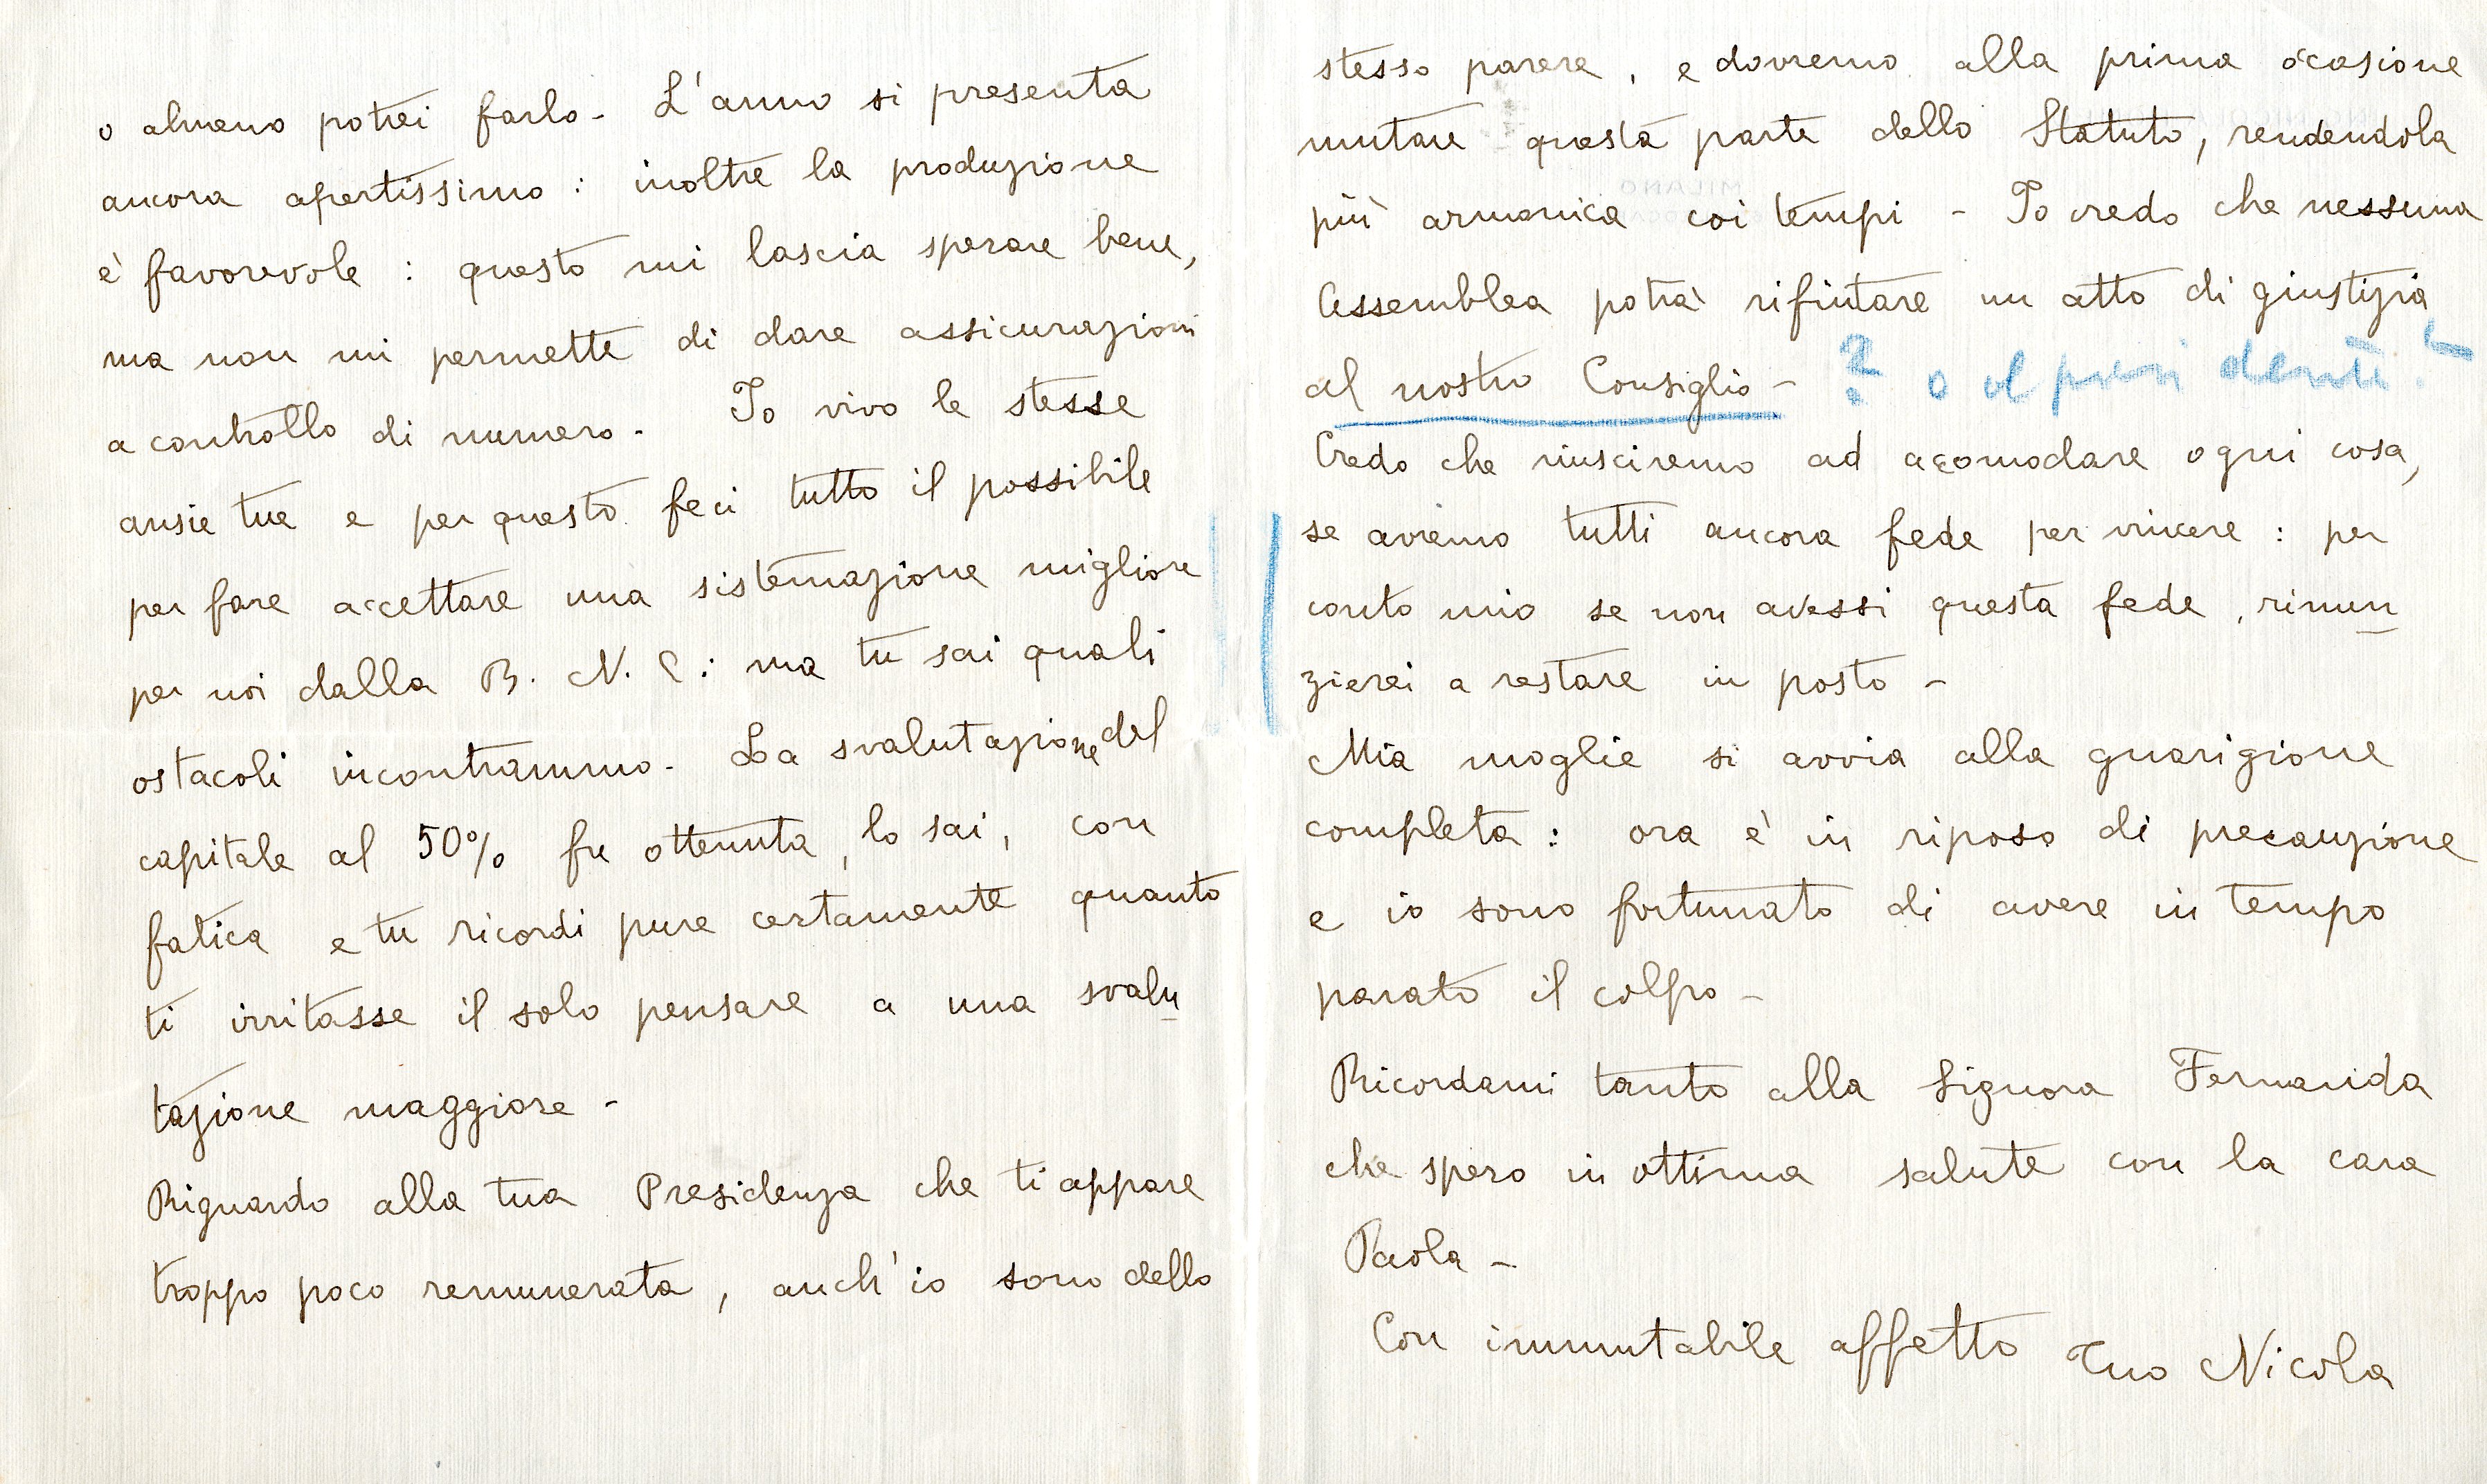 o almeno potrei farlo - L'anno si presenta
ancora apertissimo : inoltre la produzione
è favorevole : questo mi lascia sperare bene,
ma non mi permette di dare assicurazioni
a controllo di numero - Io vivo le stesse
ansie tue e per questo feci tutto il possibile
per fare accettare una sistemazione migliore
per noi dalla B. N. C : ma tu sai quali
ostacoli incontrammo - La svalutazione del
capitale al 50% fu ottenuta, lo sai, con
fatica e tu ricordi pure certamente quanto
ti irritasse il solo pensare a una svalu
tazione maggiore -
Riguardo alla tua Presidenza che ti appare
troppo poco remunerata, anch'io sono dello
stesso parere, e dovremo alla prima occasione
mutare questa parte dello Statuto, rendendola
più armonica coi tempi - Io credo che nessuna
Assemblea potrà rifiutare un atto di giustizia
al nostro Consiglio - ? o al presidente!
Credo che riusciremo ad accomodare ogni cosa,
se avremo tutti ancora fede per vincere : per
conto mio se non avessi questa fede, rinun
zierei a restare in posto -
Mia moglie si avvia alla guarigione
completa : ora è in riposo di precauzione
e io sono fortunato di avere in tempo
parato il colpo -
Ricordami tanto alla Signora Fernanda
che spero in ottima salute con la cara
Paola -
Con immutabile affetto Tuo Nicola
MILANO